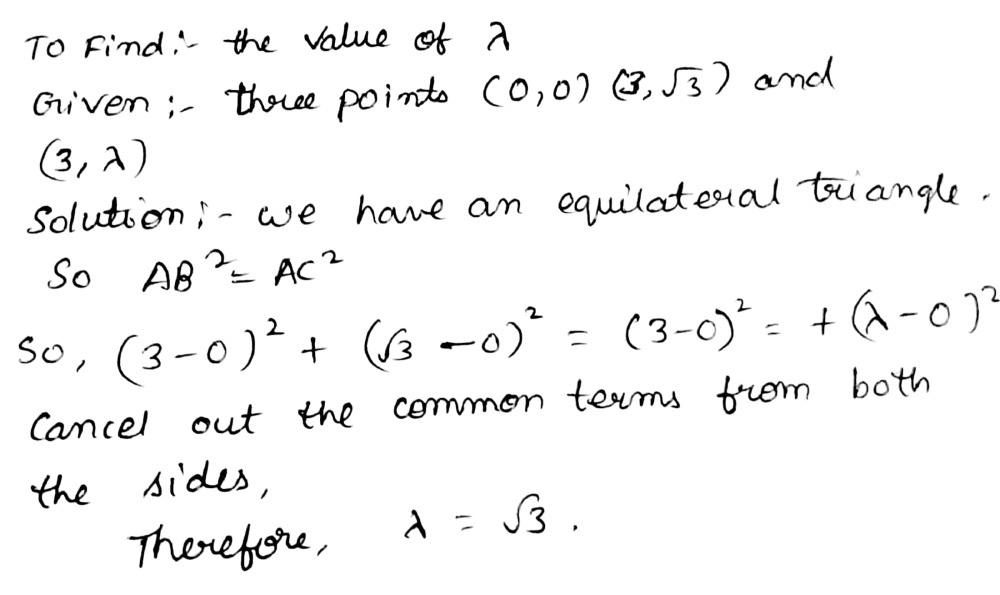 To Find:- the value of λ
Given :- three points (0,0) (3,√3) and
(3, λ)
Solution :- we have an equilateral triangle.
So AB² = AC²
So, (3-0)² + (√3 -0)² = (3-0)² = + (λ-0)²
Cancel out the common terms from both
the sides,
Therefore, λ = √3 .